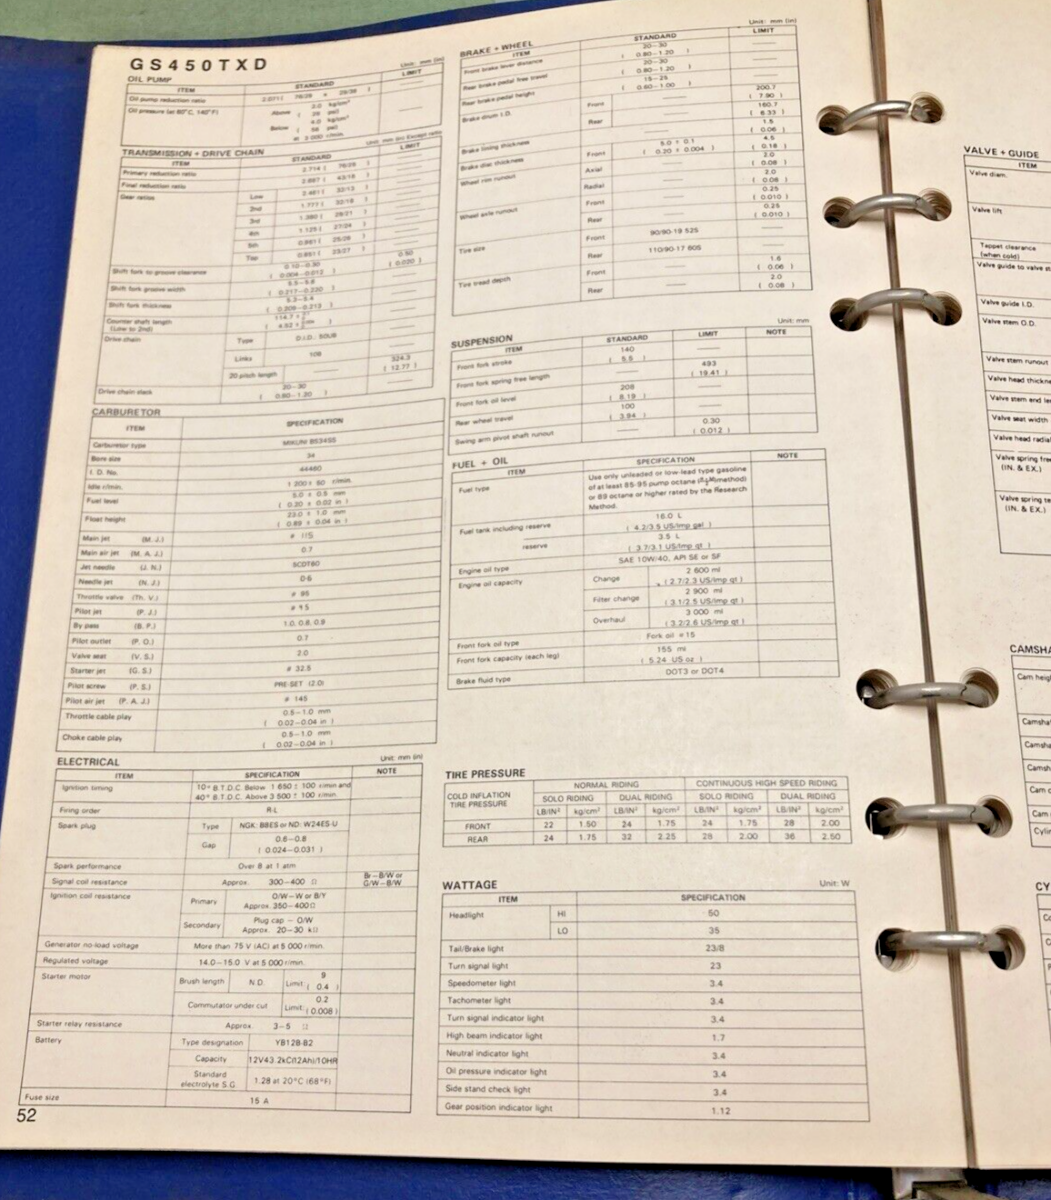 GS450TXD
OIL PUMP
Unit: mm (in)
ITEM STANDARD LIMIT
Oil pump reduction ratio
Oil pressure (at 60°C, 140°F) Above 3.0 kg/cm²
Below 4.0 kg/cm²
at 3 000 r/min.
TRANSMISSION + DRIVE CHAIN
Unit: mm (in) Except ratio
ITEM STANDARD LIMIT
Primary reduction ratio
Final reduction ratio
Gear ratios Low
2nd
3rd
4th
5th
Top
Shift fork to groove clearance 0.10–0.30 0.50
( 0.004–0.012 ) ( 0.020 )
Shift fork groove width
( 0.217–0.220 )
Shift fork thickness 5.3–5.4
( 0.209–0.213 )
Counter shaft length
(Low to 2nd)
Drive chain Type D.I.D. 50UB
Links 108
20 pitch length 324.3
( 12.77 )
Drive chain slack 20–30
( 0.80–1.20 )
CARBURETOR
ITEM SPECIFICATION
Carburetor type MIKUNI BS34SS
Bore size 34
I. D. No. 44460
Idle r/min.
Fuel level 5.0 ± 0.5 mm
( 0.20 ± 0.02 in )
Float height ± 1.0 mm
( 0.89 ± 0.04 in )
Main jet (M. J.) # 115
Main air jet (M. A. J.) 0.7
Jet needle (J. N.) 5CDT80
Needle jet (N. J.)
Throttle valve (Th. V.) # 95
Pilot jet (P. J.)
By pass (B. P.) 1.0, 0.8, 0.8
Pilot outlet (P. O.) 0.7
Valve seat (V. S.) 2.0
Starter jet (G. S.) # 32.5
Pilot screw (P. S.) PRE-SET (2.0)
Pilot air jet (P. A. J.) # 145
Throttle cable play 0.5–1.0 mm
( 0.02–0.04 in )
Choke cable play 0.5–1.0 mm
( 0.02–0.04 in )
ELECTRICAL
Unit: mm (in)
ITEM SPECIFICATION NOTE
Ignition timing 10° B.T.D.C. Below 1 650 ± 100 r/min and
40° B.T.D.C. Above 3 500 ± 100 r/min.
Firing order R·L
Spark plug Type NGK: B8ES or ND: W24ES-U
Gap 0.6–0.8
( 0.024–0.031 )
Spark performance Over 8 at 1 atm
Signal coil resistance Approx. 300–400 Ω Br–B/W or
G/W–B/W
Ignition coil resistance Primary O/W–W or B/Y
Approx. 350–400Ω
Secondary Plug cap – O/W
Approx. 20–30 kΩ
Generator no-load voltage More than 75 V (AC) at 5 000 r/min.
Regulated voltage 14.0–15.0 V at 5 000 r/min.
Starter motor Brush length N.D. Limit: 9
( 0.4 )
Commutator under cut Limit: 0.2
( 0.008 )
Starter relay resistance Approx. 3–5 Ω
Battery Type designation YB12B-B2
Capacity 12V43.2kC(12Ah)/10HR
Standard
electrolyte S.G. 1.28 at 20°C (68°F)
Fuse size 15 A
52
BRAKE + WHEEL
Unit: mm (in)
ITEM STANDARD LIMIT
Front brake lever distance 20–30
( 0.80–1.20 )
Rear brake pedal free travel 20–30
( 0.80–1.20 )
Rear brake pedal height 15–25
( 0.60–1.00 )
Brake drum I.D. Front 200.7
( 7.90 )
Rear 160.7
( 6.33 )
Brake lining thickness 1.5
( 0.06 )
Brake disc thickness Front 5.0 ± 0.1 4.5
( 0.20 ± 0.004 ) ( 0.18 )
Wheel rim runout Axial 2.0
( 0.08 )
Radial 2.0
( 0.08 )
Wheel axle runout Front 0.25
( 0.010 )
Rear 0.25
( 0.010 )
Tire size Front 90/90-19 52S
Rear 110/90-17 60S
Tire tread depth Front 1.6
( 0.06 )
Rear 2.0
( 0.08 )
SUSPENSION
Unit: mm
ITEM STANDARD LIMIT NOTE
Front fork stroke 140
( 5.5 )
Front fork spring free length 493
( 19.41 )
Front fork oil level 208
( 8.19 )
Rear wheel travel 100
( 3.94 )
Swing arm pivot shaft runout 0.30
( 0.012 )
FUEL + OIL
ITEM SPECIFICATION NOTE
Fuel type Use only unleaded or low-lead type gasoline
of at least 85-95 pump octane (R+M/2 method)
or 89 octane or higher rated by the Research
Method.
Fuel tank including reserve 16.0 L
( 4.2/3.5 US/Imp gal )
reserve 3.5 L
( 3.7/3.1 US/Imp qt )
Engine oil type SAE 10W/40, API SE or SF
Engine oil capacity Change 2 600 ml
( 2.7/2.3 US/Imp qt )
Filter change 2 900 ml
( 3.1/2.5 US/Imp qt )
Overhaul 3 000 ml
( 3.2/2.6 US/Imp qt )
Front fork oil type Fork oil #15
Front fork capacity (each leg) 155 ml
( 5.24 US oz )
Brake fluid type DOT3 or DOT4
TIRE PRESSURE
COLD INFLATION
TIRE PRESSURE NORMAL RIDING CONTINUOUS HIGH SPEED RIDING
SOLO RIDING DUAL RIDING SOLO RIDING DUAL RIDING
LB/IN² kg/cm² LB/IN² kg/cm² LB/IN² kg/cm² LB/IN² kg/cm²
FRONT 22 1.50 24 1.75 24 1.75 28 2.00
REAR 24 1.75 32 2.25 28 2.00 36 2.50
WATTAGE
Unit: W
ITEM SPECIFICATION
Headlight HI 50
LO 35
Tail/Brake light 23/8
Turn signal light 23
Speedometer light 3.4
Tachometer light 3.4
Turn signal indicator light 3.4
High beam indicator light 1.7
Neutral indicator light 3.4
Oil pressure indicator light 3.4
Side stand check light 3.4
Gear position indicator light 1.12
VALVE + GUIDE
ITEM
Valve diam.
Valve lift
Tappet clearance
(when cold)
Valve guide to valve st
Valve guide I.D.
Valve stem O.D.
Valve stem runout
Valve head thickne
Valve stem end le
Valve seat width
Valve head radial
Valve spring fre
(IN. & EX.)
Valve spring te
(IN. & EX.)
CAMSHA
Cam heig
Camshaf
Camsha
Cam c
Cam
Cylin
CY